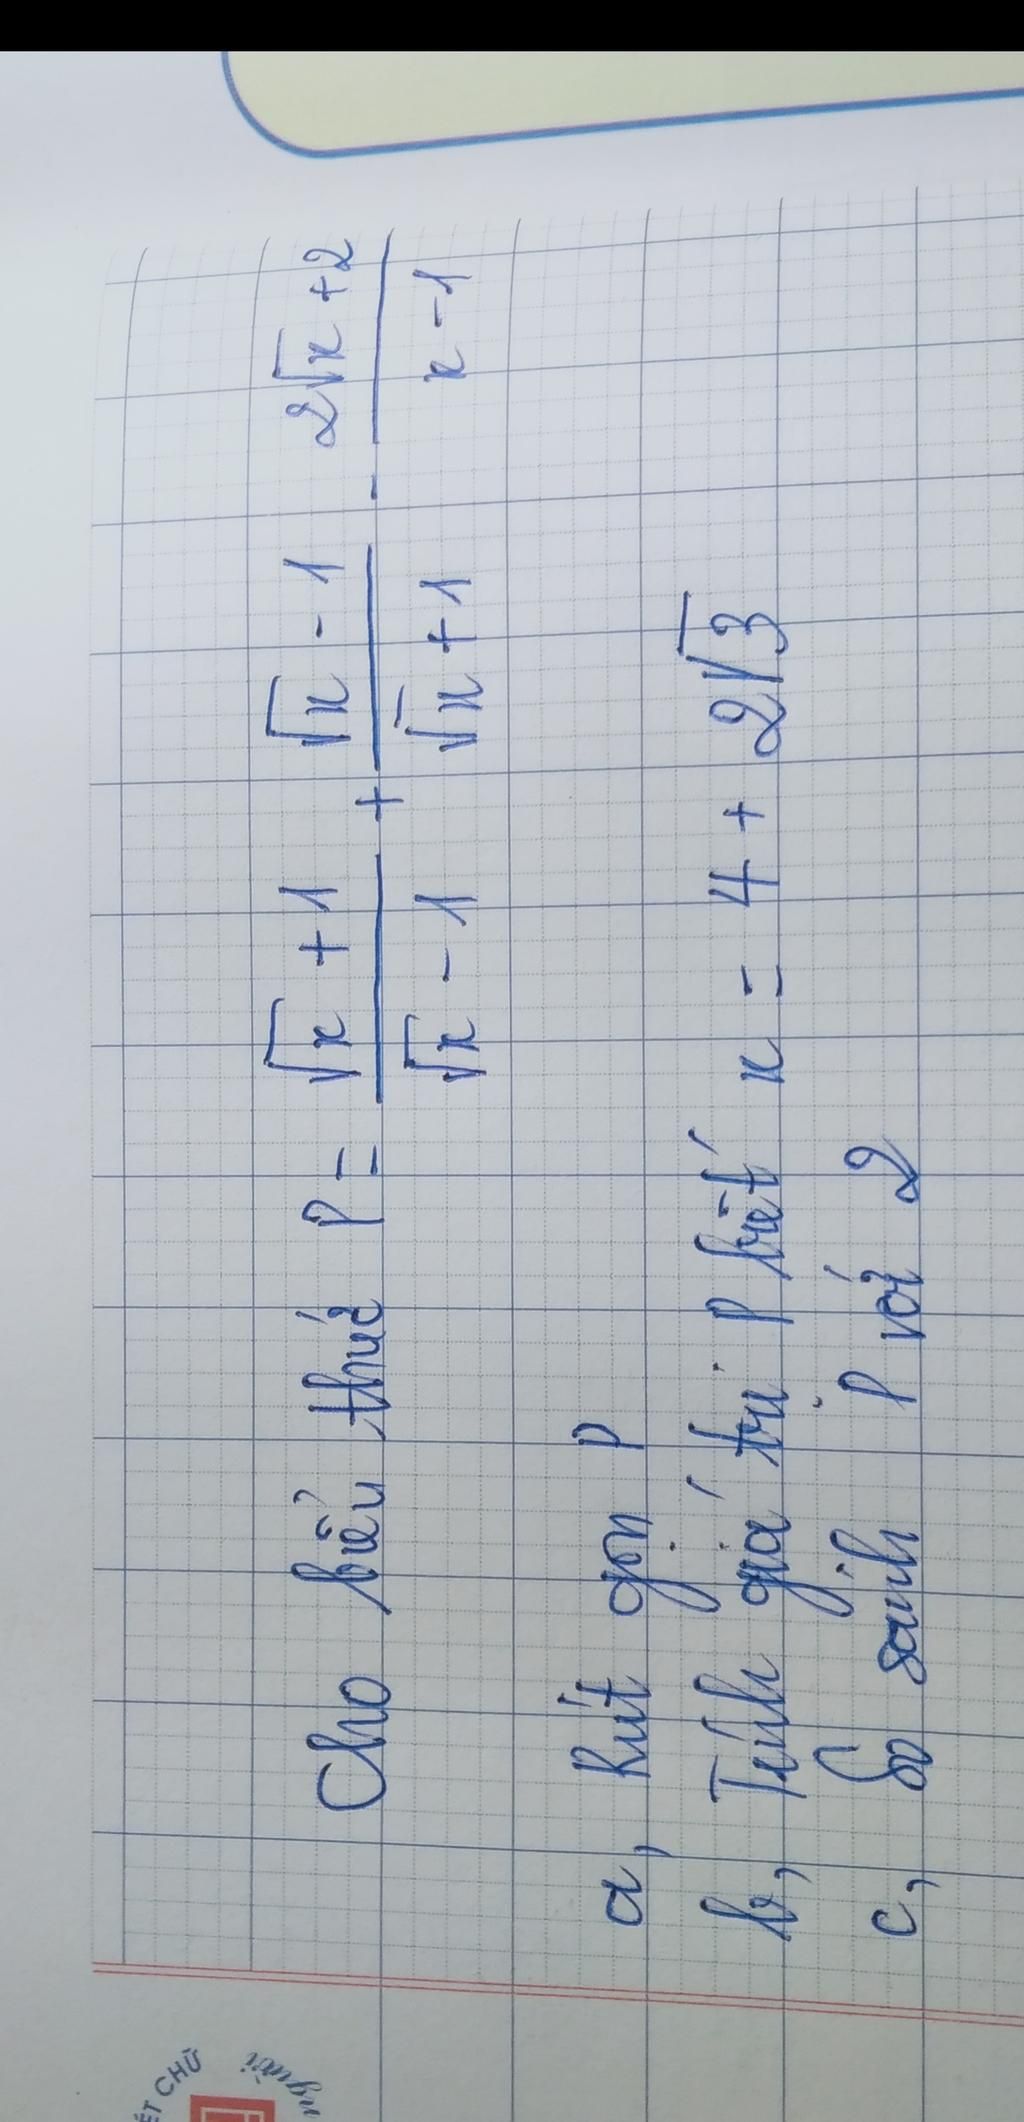 Cho biểu thức P = \frac{\sqrt{x} + 1}{\sqrt{x} - 1} + \frac{\sqrt{x} - 1}{\sqrt{x} + 1} - \frac{2\sqrt{x} + 2}{x - 1}
a, Rút gọn P
b, Tính giá trị P biết x = 4 + 2\sqrt{3}
c, So sánh P với 2
ẾT CHỮ
người